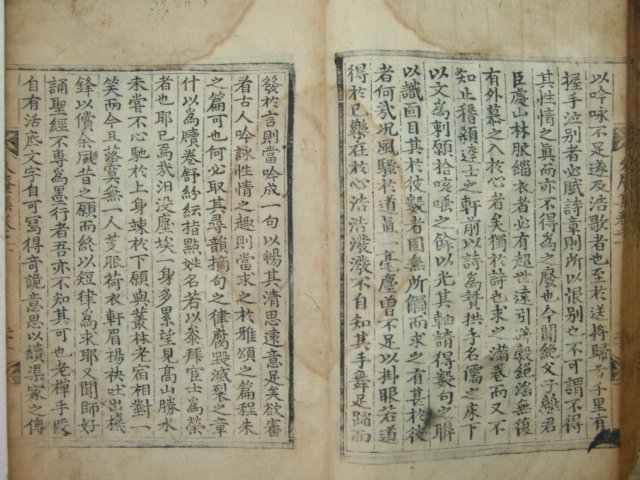 以吟咏不足遂及浩歌者也至於送將歸於千里有
握手泣別者必賦詩章則所以恨別也不可謂不得
其性情之眞而亦不得爲之廢也今聞絶父子離君
臣處山林服緇衣者必有超世遠引辟穀絶滛無復
有外慕之入於心者矣獨於詩也求之滿卷而又不
知止稽顙達士之軒前以詩爲贄拱手名儒之床下
以文爲刺願拾咳唾之餘以光其軸請得數句之聯
以識面目其於彼數者固無所觸而求之有甚於彼
者何哉况風騷於道眞一毫塵曾不足以掛眼若道
得於已樂在於心浩浩潑潑不自知其手舞足踏而
發於言則當吟成一句以暢其清思遠意足矣欲審
看古人吟詠性情之趣則當求之於雅頌之篇程朱
之篇可也何必取其尋韻摘句之律腐毁滅裂之章
什以爲牘卷舒紛紜指點姓名若以叅拜宦士爲榮
者也耶已焉我汨没塵埃一身多累望見髙山勝水
未嘗不心馳於上身竦於下願與叢林老宿相對一
笑而今且落寞無一人芰服荷衣軒眉揚袂吐出機
鋒以償余夙昔之願而終以短律爲求耶又聞師好
誦聖經不專爲墨行者吾亦不知其可也老禪手段
自有活底文字自可寫得奇詭意思以續渠家之傳